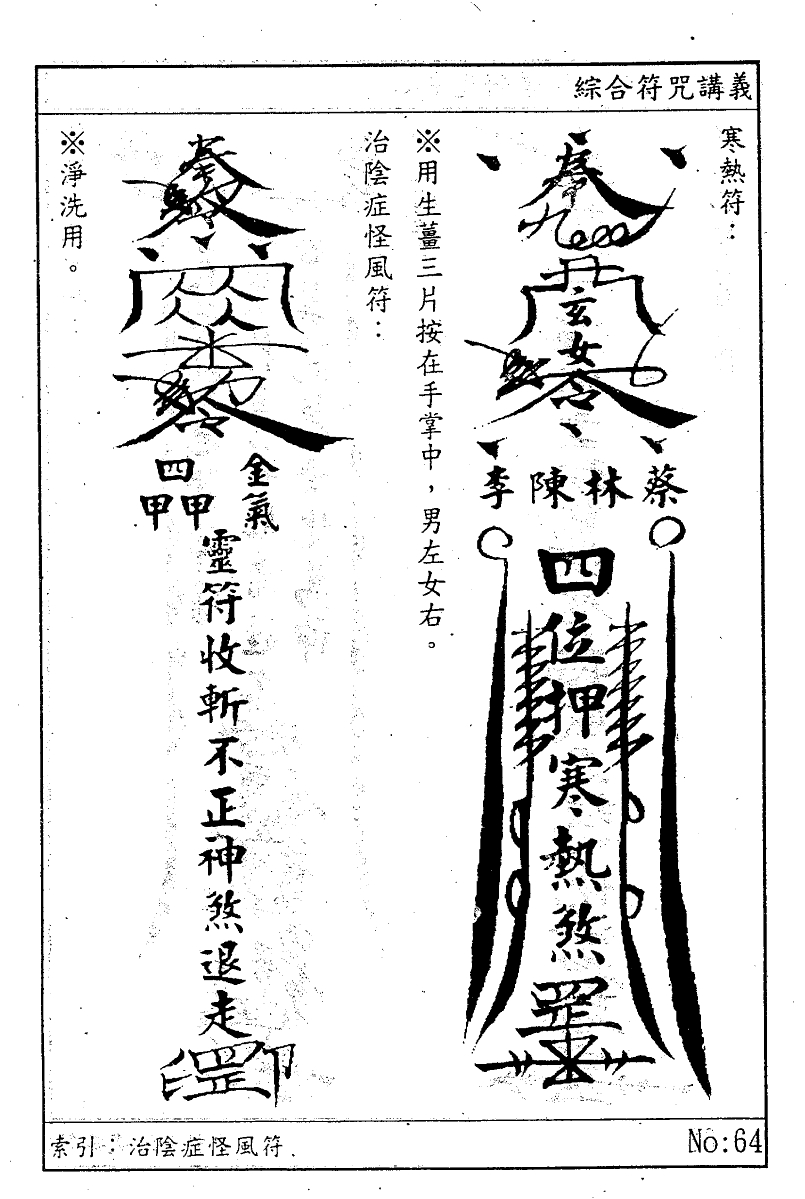 綜合符咒講義
寒熱符：
玄女
蔡林陳李
四位押寒熱煞罡
※用生薑三片按在手掌中，男左女右。
治陰症怪風符：
金氣
四甲甲
靈符收斬不正神煞退走
罡印
※淨洗用。
索引：治陰症怪風符.
No:64